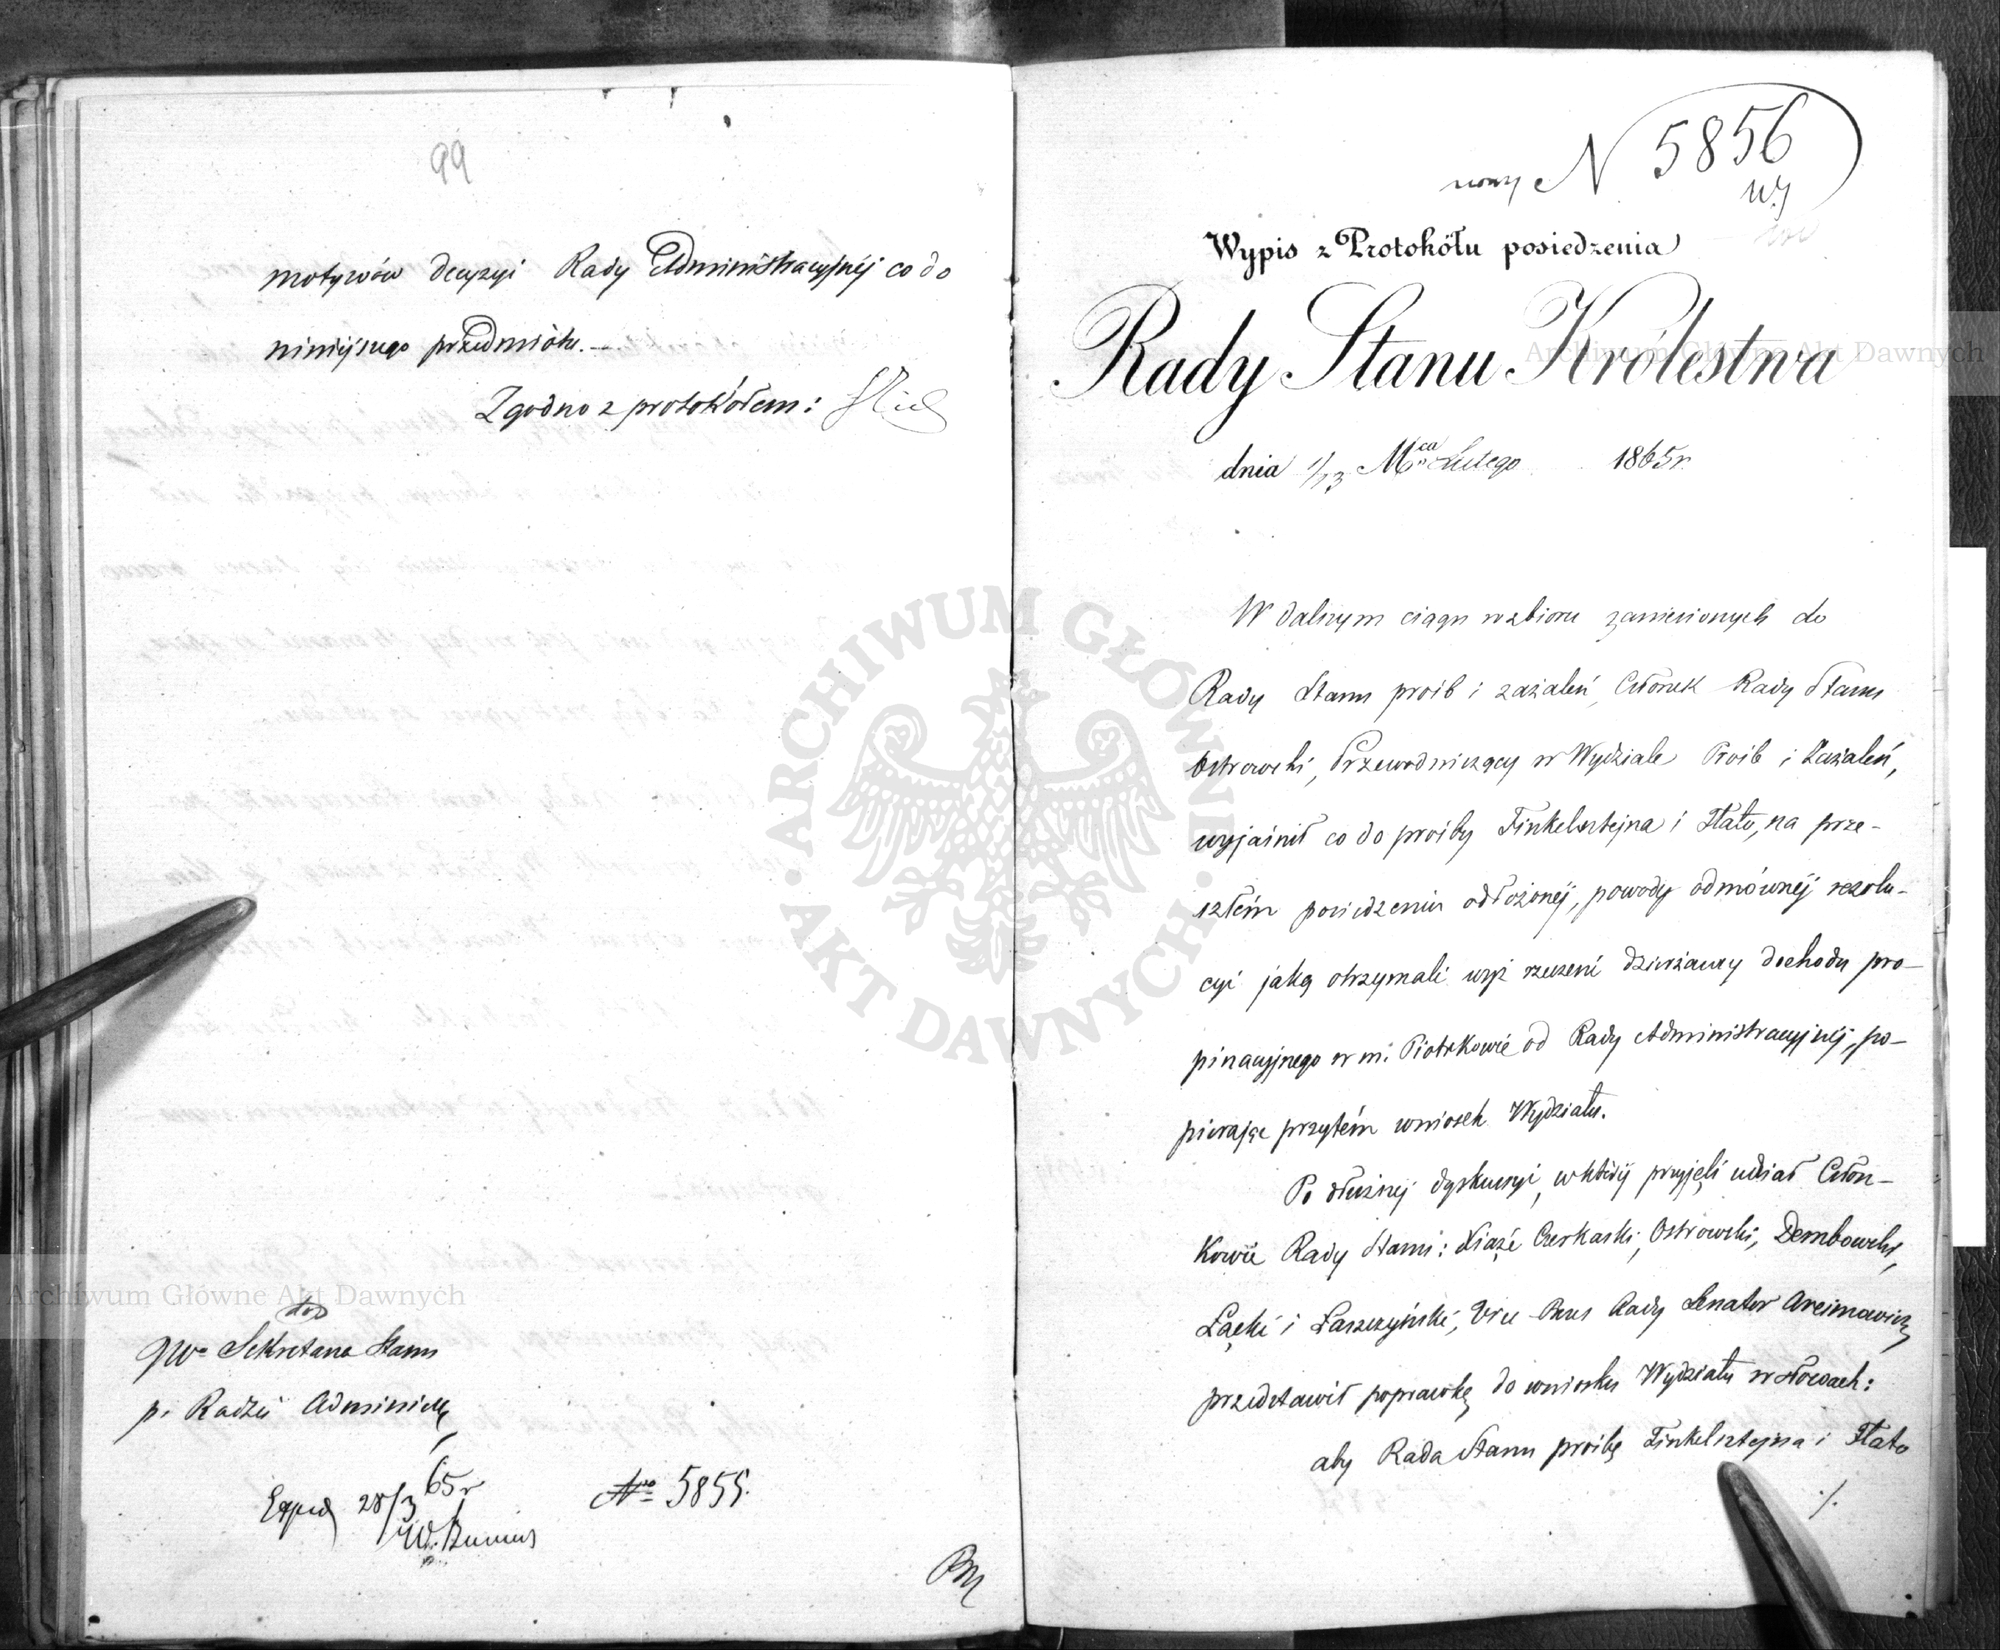 99
motywów decyzyi Rady Administracyjnéj co do
niniejszego przedmiotu.—
Zgodno z protokółem:
do
JW. Sekretarza Stanu
p. Radzie Administr.
Exped 28/3 65 r
No 5855.
nowy N 5856
Wypis z Protokółu posiedzenia
Rady Stanu Królestwa
dnia 1/13 Mca Lutego 1865 r.
W dalszym ciągu rozbioru zaniesionych do
Rady Stanu próśb i zażaleń, Członek Rady Stanu
Ostrowski, Przewodniczący w Wydziale Próśb i Zażaleń,
wyjaśnił co do prośby Finkelsztejna i Flato, na prze-
szłém posiedzeniu odłożonéj, powody odmównéj rezolu-
cyi jaką otrzymali wyż rzeczeni dzierżawcy dochodu pro-
pinacyjnego w m. Piotrkowie od Rady Administracyjnéj, po-
pierając przytém wniosek Wydziału.
Po dłuższej dyskusyi, w któréj przyjęli udział Człon-
kowie Rady Stanu: Xiąże Czerkaski, Ostrowski, Dembowski,
Łącki i Łaszczyński, Vice Prezes Rady Senator Arcimowicz
przedstawił poprawkę do wniosku Wydziału w słowach:
aby Rada Stanu prośbę Finkelsztejna i Flato
./.
Archiwum Główne Akt Dawnych
Archiwum Główne Akt Dawnych
ARCHIWUM GŁÓWNE AKT DAWNYCH